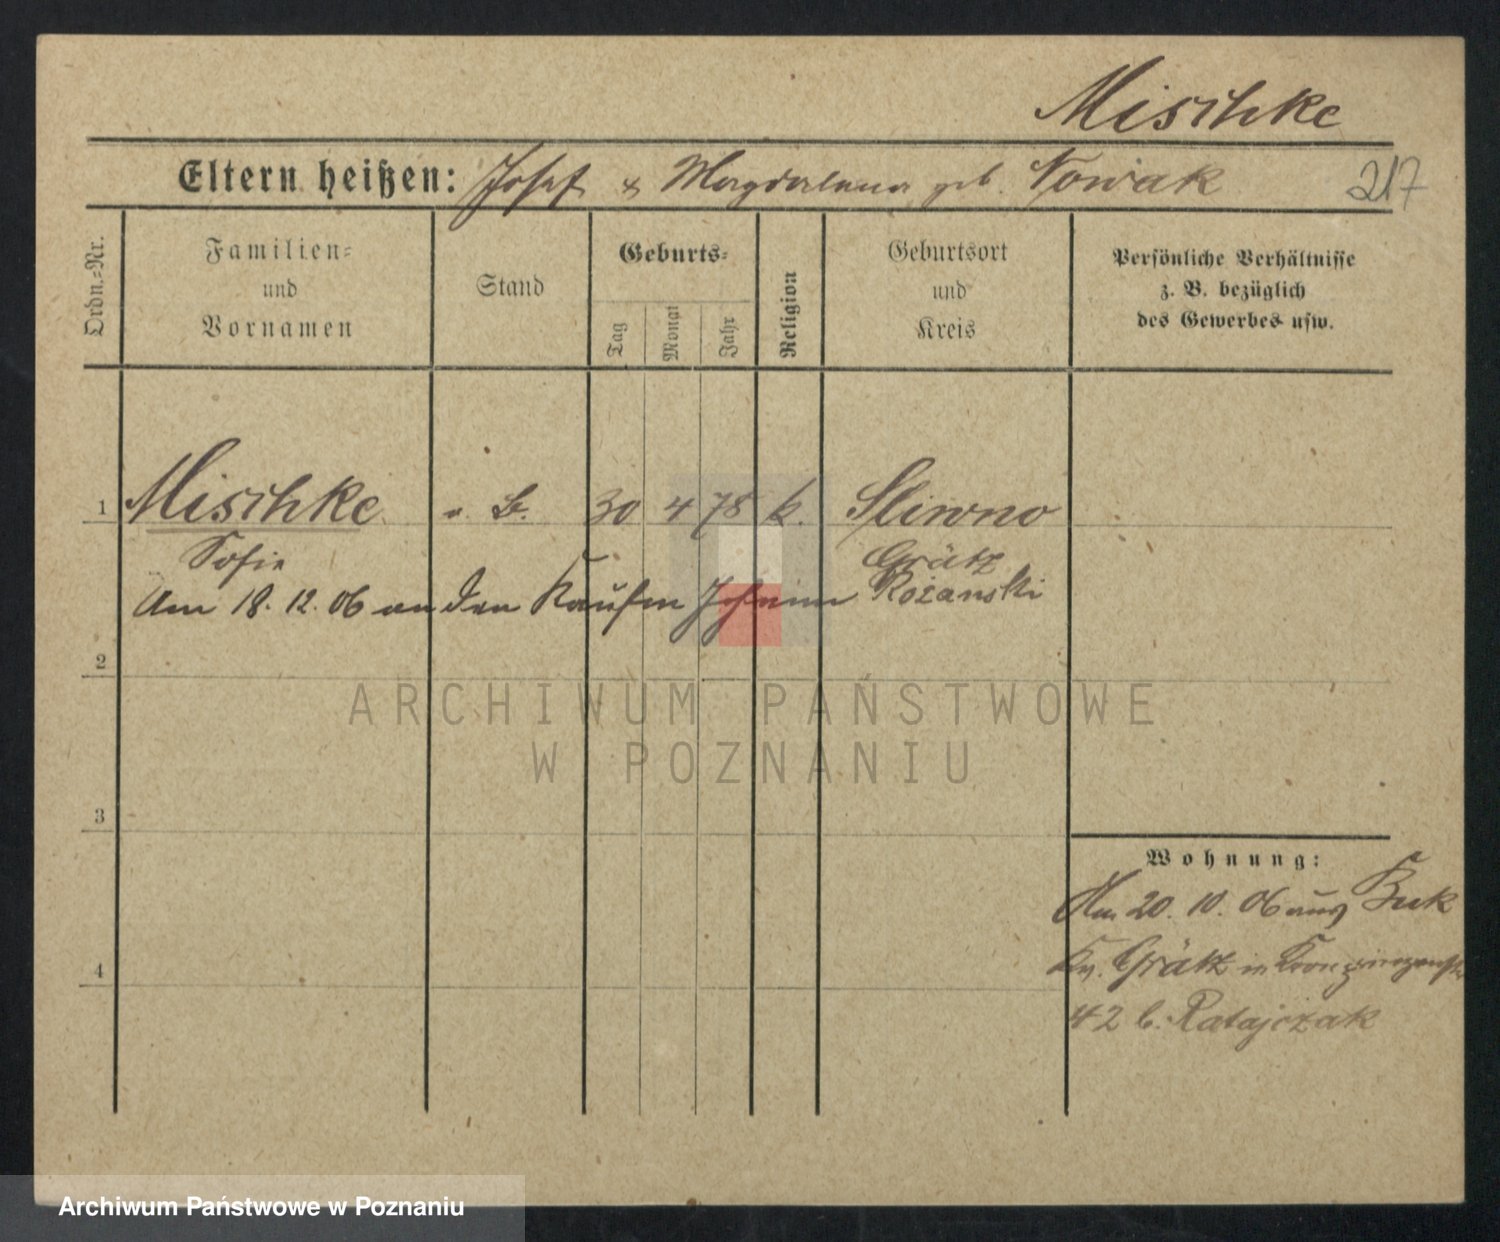 Mischke
Eltern heißen: Josef & Magdalena geb. Nowak 217
Ordn.-Nr.
Familien-
und
Vornamen
Stand
Geburts-
Tag
Monat
Jahr
Religion
Geburtsort
und
Kreis
Persönliche Verhältnisse
z. B. bezüglich
des Gewerbes usw.
1 Mischke 30 4 78 k. Sliwno
Sofie Grätz
Am 18. 12. 06 an den Kaufm Johann Rożanski
2
3
4
Wohnung:
Am 20. 10. 06 aus Buk
Kr. Grätz in Kronprinzenstr
42 b. Ratajczak
ARCHIWUM PAŃSTWOWE
W POZNANIU
Archiwum Państwowe w Poznaniu